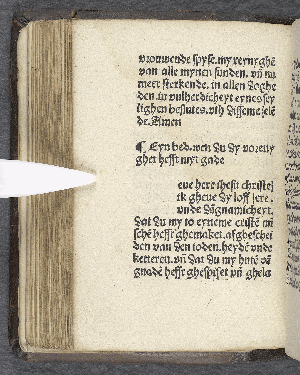 vrouwende spyse. my reynyghē
van alle mynen sunden. vn̄ nu
meer sterkende. in allen doghe
den. in vulherdicheyt eynes sey
lighen beslutes. vth disseme ſelē
de. Amen
¶ Eyn bed. wen du dy voreny
ghet hefft myt gade
eve here ihesu christe
ik gheve dy loff ere.
vnde dangnamicheyt.
dat du my to eyneme cristē mī
schē heffst ghemaket. afgheschei
den van den toden. heydē vnde
ketteren. vn̄ dat du my hutē vā
gnadē heffst ghespiset vn̄ ghela